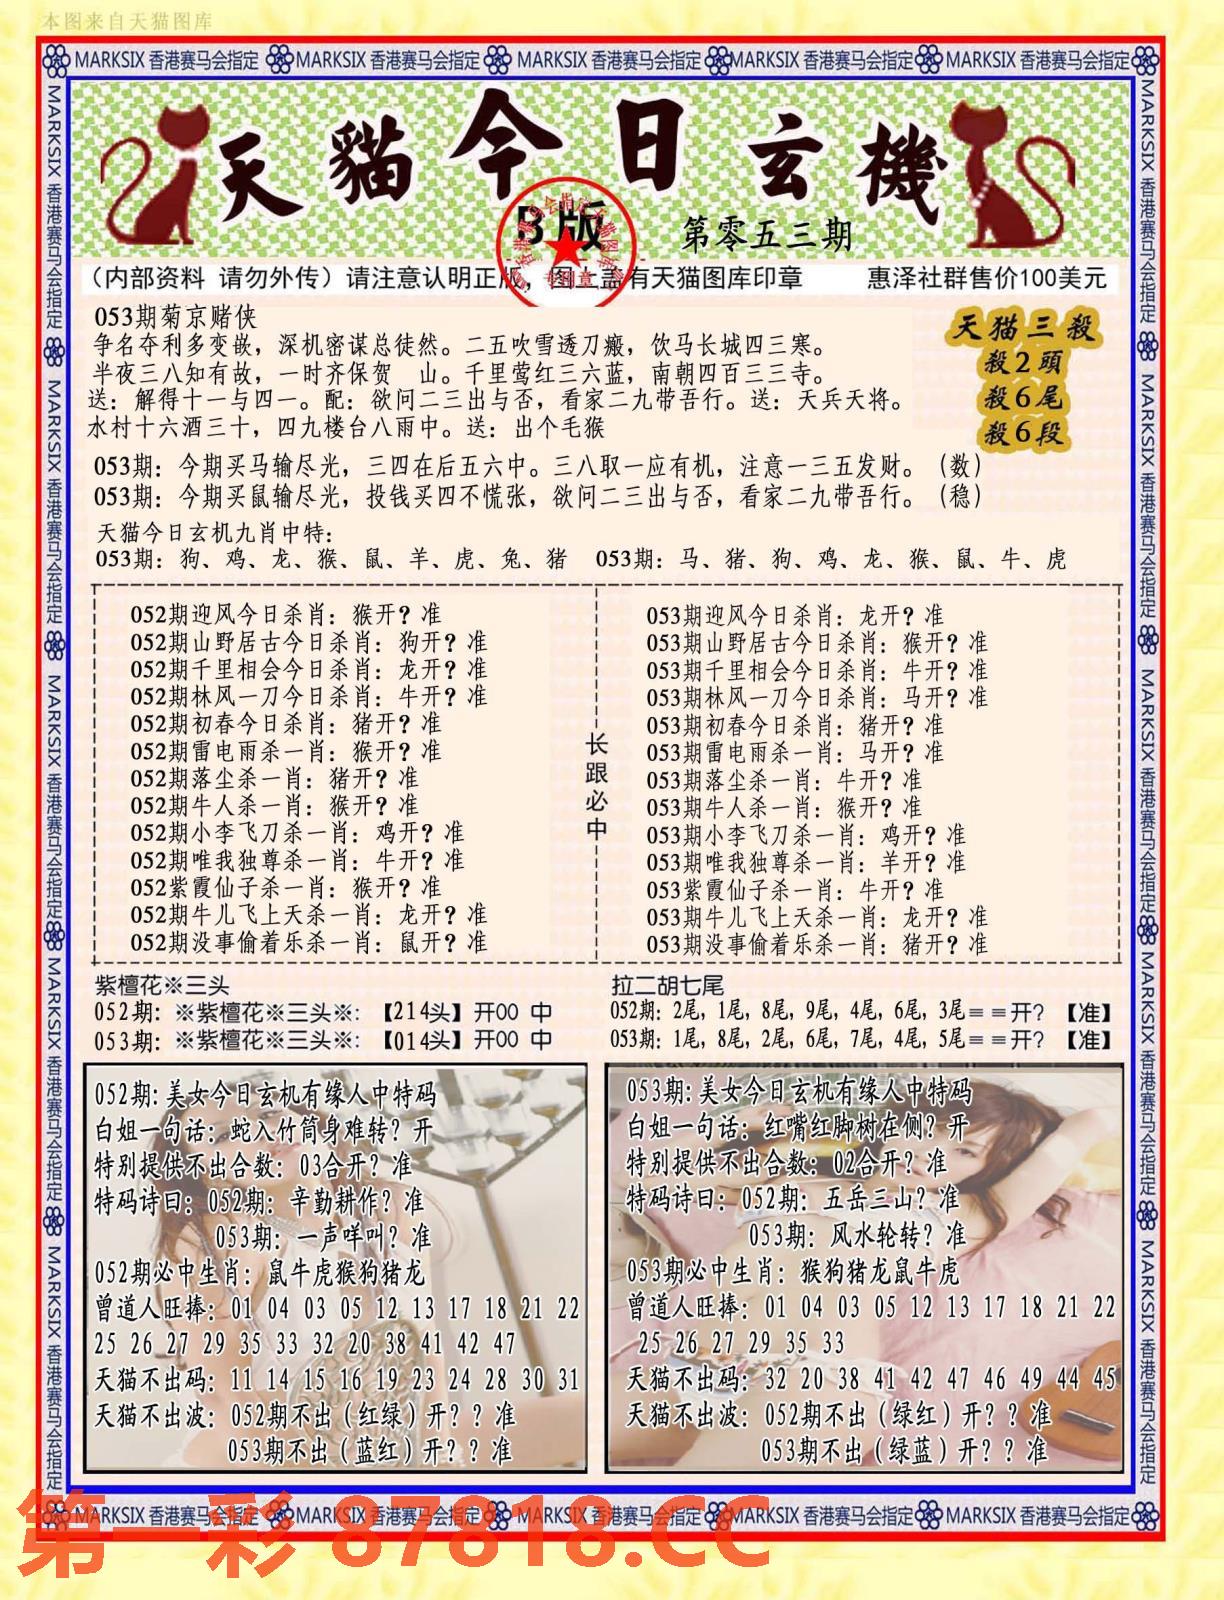 本图来自天猫图库
MARKSIX 香港赛马会指定 MARKSIX 香港赛马会指定 MARKSIX 香港赛马会指定 MARKSIX 香港赛马会指定 MARKSIX 香港赛马会指定
天貓今日玄機
B版 第零五三期
（内部资料 请勿外传）请注意认明正版，图上盖有天猫图库印章 惠泽社群售价100美元
专用章
053期菊京赌侠
争名夺利多变嵌，深机密谋总徒然。二五吹雪透刀瘢，饮马长城四三寒。
半夜三八知有故，一时齐保贺 山。千里莺红三六蓝，南朝四百三三寺。
送：解得十一与四一。配：欲问二三出与否，看家二九带吾行。送：天兵天将。
水村十六酒三十，四九楼台八雨中。送：出个毛猴
天猫三殺
殺2頭
殺6尾
殺6段
053期：今期买马输尽光，三四在后五六中。三八取一应有机，注意一三五发财。（数）
053期：今期买鼠输尽光，投钱买四不慌张，欲问二三出与否，看家二九带吾行。（稳）
天猫今日玄机九肖中特：
053期：狗、鸡、龙、猴、鼠、羊、虎、兔、猪 053期：马、猪、狗、鸡、龙、猴、鼠、牛、虎
052期迎风今日杀肖：猴开？准
052期山野居古今日杀肖：狗开？准
052期千里相会今日杀肖：龙开？准
052期林风一刀今日杀肖：牛开？准
052期初春今日杀肖：猪开？准
052期雷电雨杀一肖：猴开？准
052期落尘杀一肖：猪开？准
052期牛人杀一肖：猴开？准
052期小李飞刀杀一肖：鸡开？准
052期唯我独尊杀一肖：牛开？准
052紫霞仙子杀一肖：猴开？准
052期牛儿飞上天杀一肖：龙开？准
052期没事偷着乐杀一肖：鼠开？准
长跟必中
053期迎风今日杀肖：龙开？准
053期山野居古今日杀肖：猴开？准
053期千里相会今日杀肖：牛开？准
053期林风一刀今日杀肖：马开？准
053期初春今日杀肖：猪开？准
053期雷电雨杀一肖：马开？准
053期落尘杀一肖：牛开？准
053期牛人杀一肖：猴开？准
053期小李飞刀杀一肖：鸡开？准
053期唯我独尊杀一肖：羊开？准
053紫霞仙子杀一肖：牛开？准
053期牛儿飞上天杀一肖：龙开？准
053期没事偷着乐杀一肖：猪开？准
紫檀花※三头
052期：※紫檀花※三头※：【214头】开00 中
053期：※紫檀花※三头※：【014头】开00 中
拉二胡七尾
052期：2尾，1尾，8尾，9尾，4尾，6尾，3尾＝＝开？【准】
053期：1尾，8尾，2尾，6尾，7尾，4尾，5尾＝＝开？【准】
052期：美女今日玄机有缘人中特码
白姐一句话：蛇入竹筒身难转？开
特别提供不出合数：03合开？准
特码诗曰：052期：辛勤耕作？准
053期：一声咩叫？准
052期必中生肖：鼠牛虎猴狗猪龙
曾道人旺捧：01 04 03 05 12 13 17 18 21 22
25 26 27 29 35 33 32 20 38 41 42 47
天猫不出码：11 14 15 16 19 23 24 28 30 31
天猫不出波：052期不出（红绿）开？？准
053期不出（蓝红）开？？准
053期：美女今日玄机有缘人中特码
白姐一句话：红嘴红脚树在侧？开
特别提供不出合数：02合开？准
特码诗曰：052期：五岳三山？准
053期：风水轮转？准
053期必中生肖：猴狗猪龙鼠牛虎
曾道人旺捧：01 04 03 05 12 13 17 18 21 22
25 26 27 29 35 33
天猫不出码：32 20 38 41 42 47 46 49 44 45
天猫不出波：052期不出（绿红）开？？准
053期不出（绿蓝）开？？准
MARKSIX 香港赛马会指定 MARKSIX 香港赛马会指定 MARKSIX 香港赛马会指定 MARKSIX 香港赛马会指定 MARKSIX 香港赛马会指定
MARKSIX 香港赛马会指定 MARKSIX 香港赛马会指定 MARKSIX 香港赛马会指定 MARKSIX 香港赛马会指定 MARKSIX 香港赛马会指定
MARKSIX 香港赛马会指定 MARKSIX 香港赛马会指定 MARKSIX 香港赛马会指定 MARKSIX 香港赛马会指定 MARKSIX 香港赛马会指定
第一彩 87818.CC